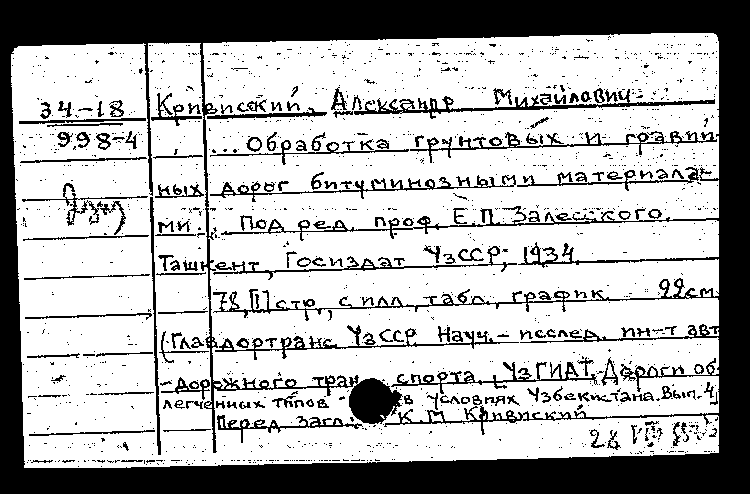 34-18 Кривиский, Александр Михайлович.
998-4 ... Обработка грунтовых и гравий-
ных дорог битуминозными материала-
ми... Под ред. проф. Е.П. Залесского.
Ташкент, Госиздат УзССР, 1934.
78,[1] стр., с илл., табл., график. 22см
(Главдортранс УзССР Науч.-исслед. ин-т авт
-дорожного транспорта. УзГИАТ. Дороги об-
легченных типов в условиях Узбекистана. Вып. 4)
Перед загл.: К.М. Кривиский
28 VIII